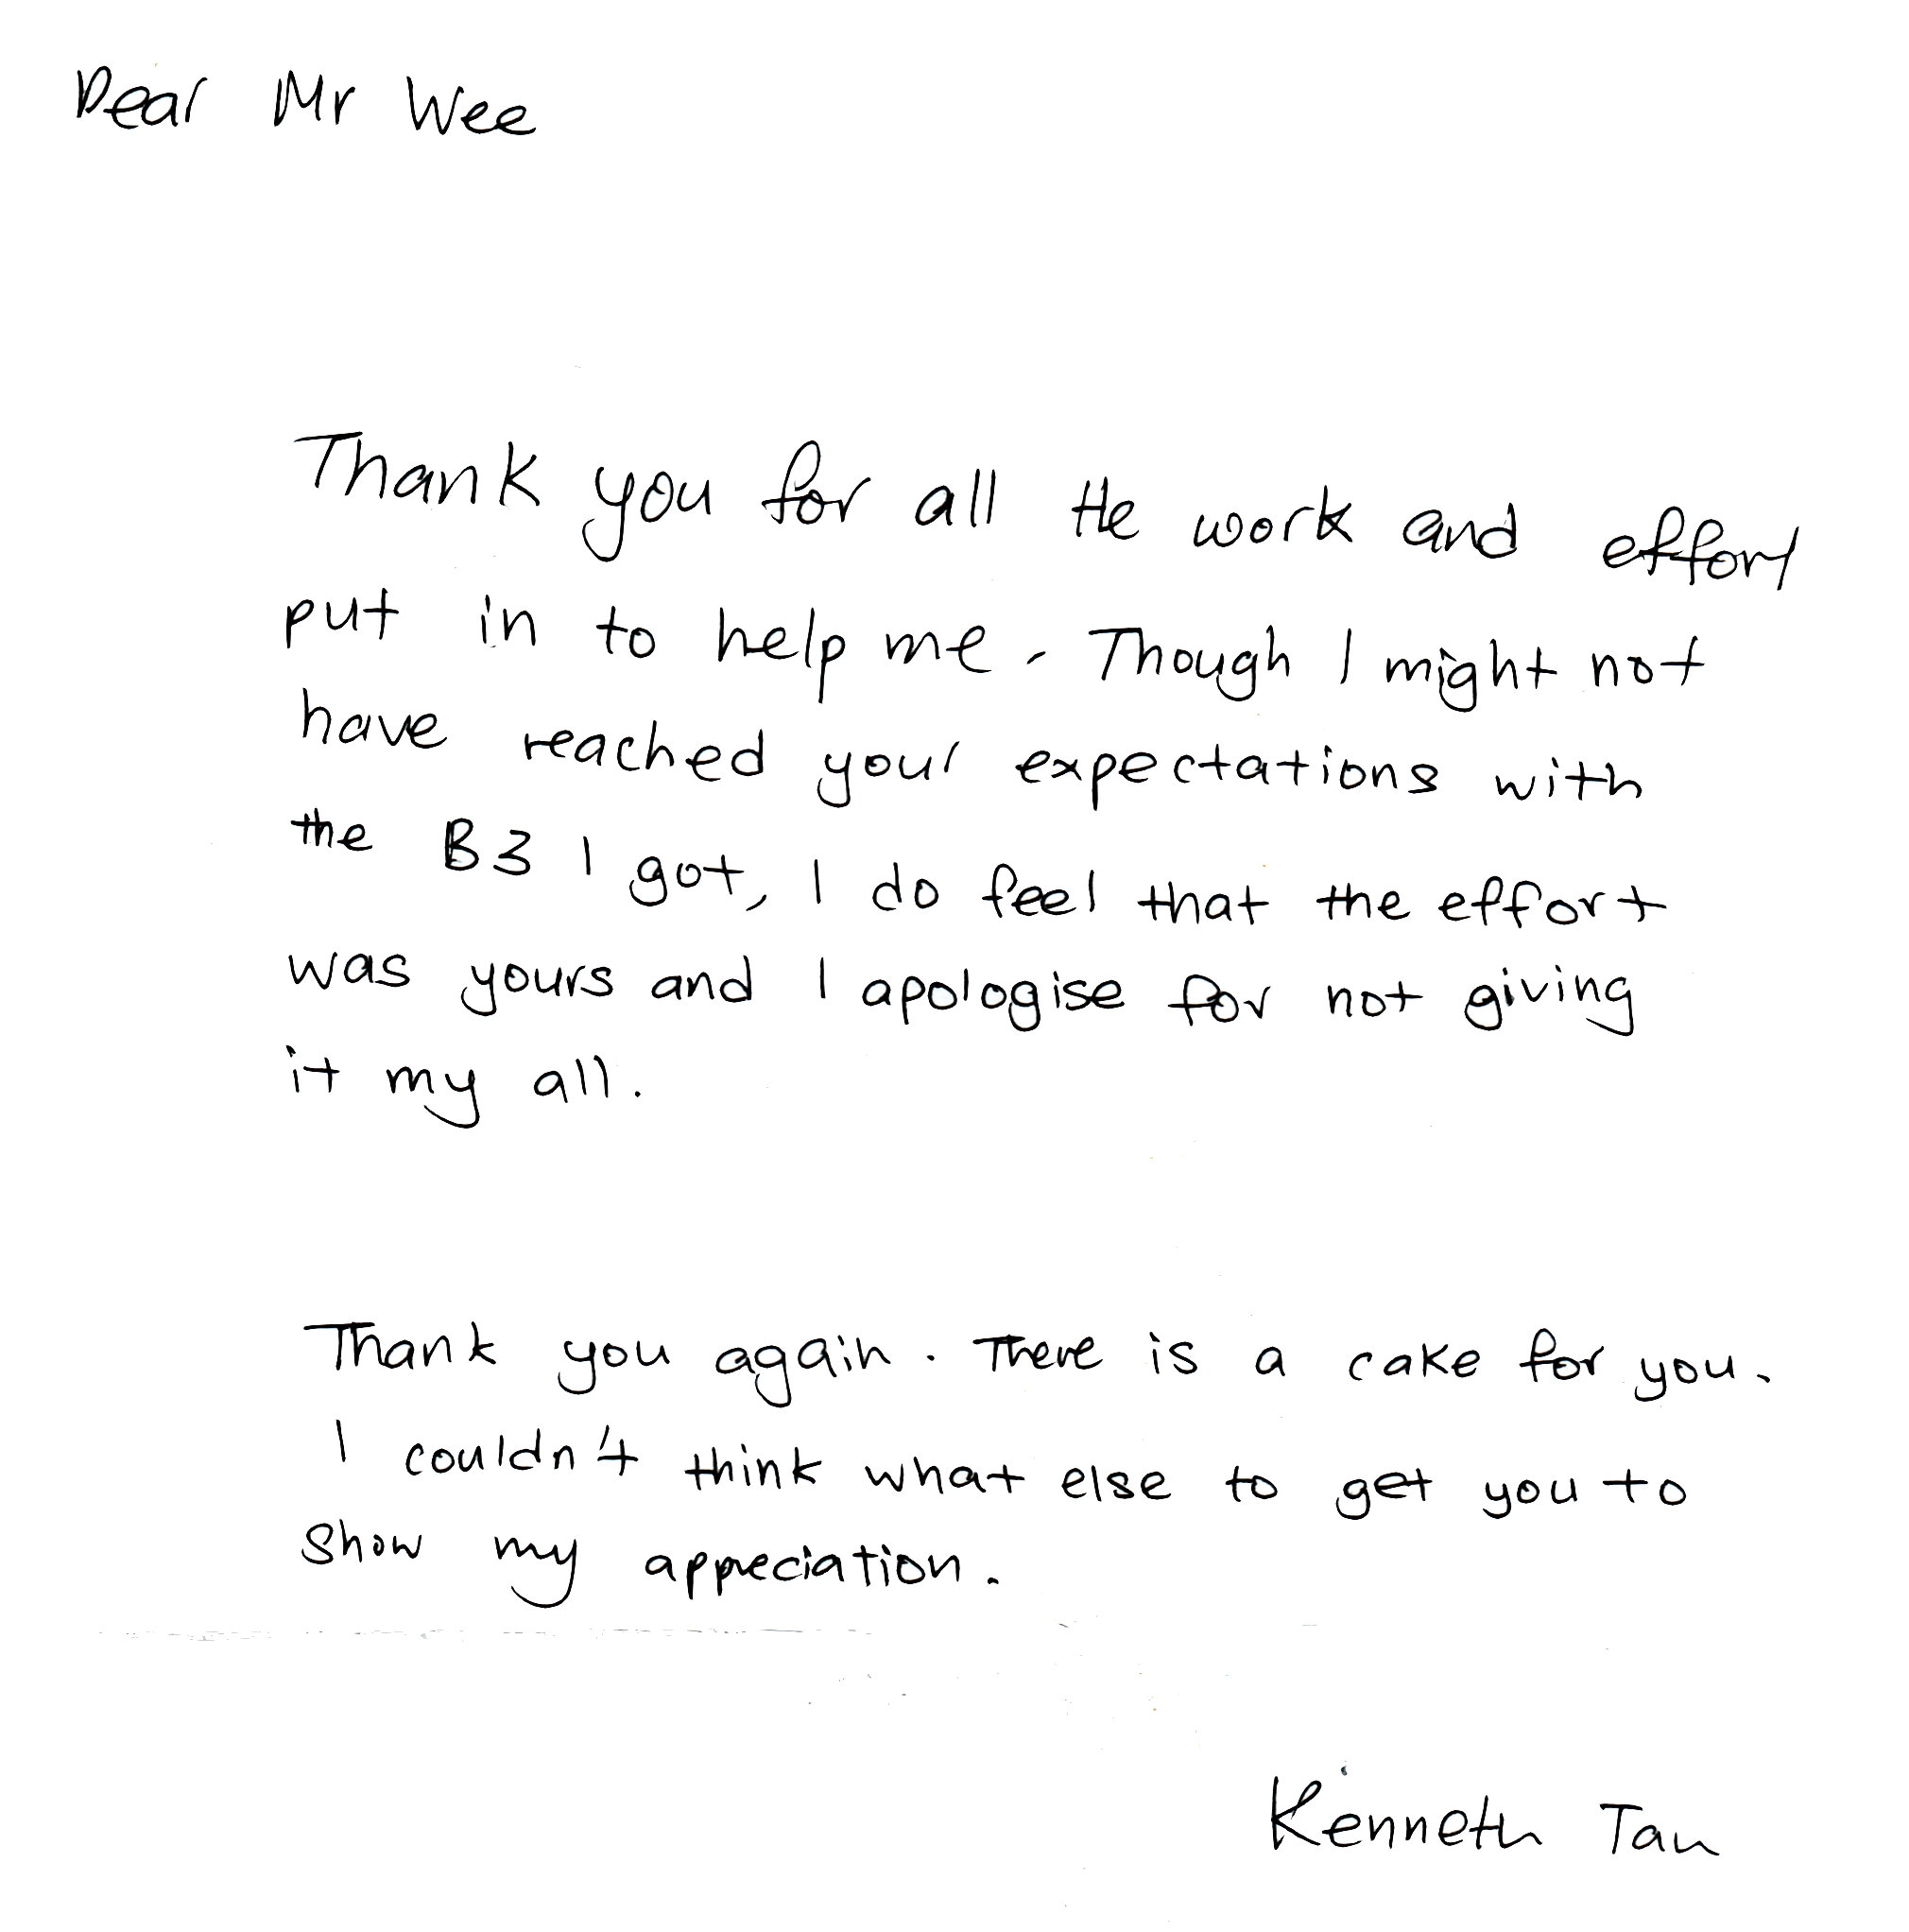 Dear Mr Wee
Thank you for all the work and effort
put in to help me. Though I might not
have reached your expectations with
the B3 I got, I do feel that the effort
was yours and I apologise for not giving
it my all.
Thank you again. There is a cake for you.
I couldn't think what else to get you to
show my appreciation.
Kenneth Tan